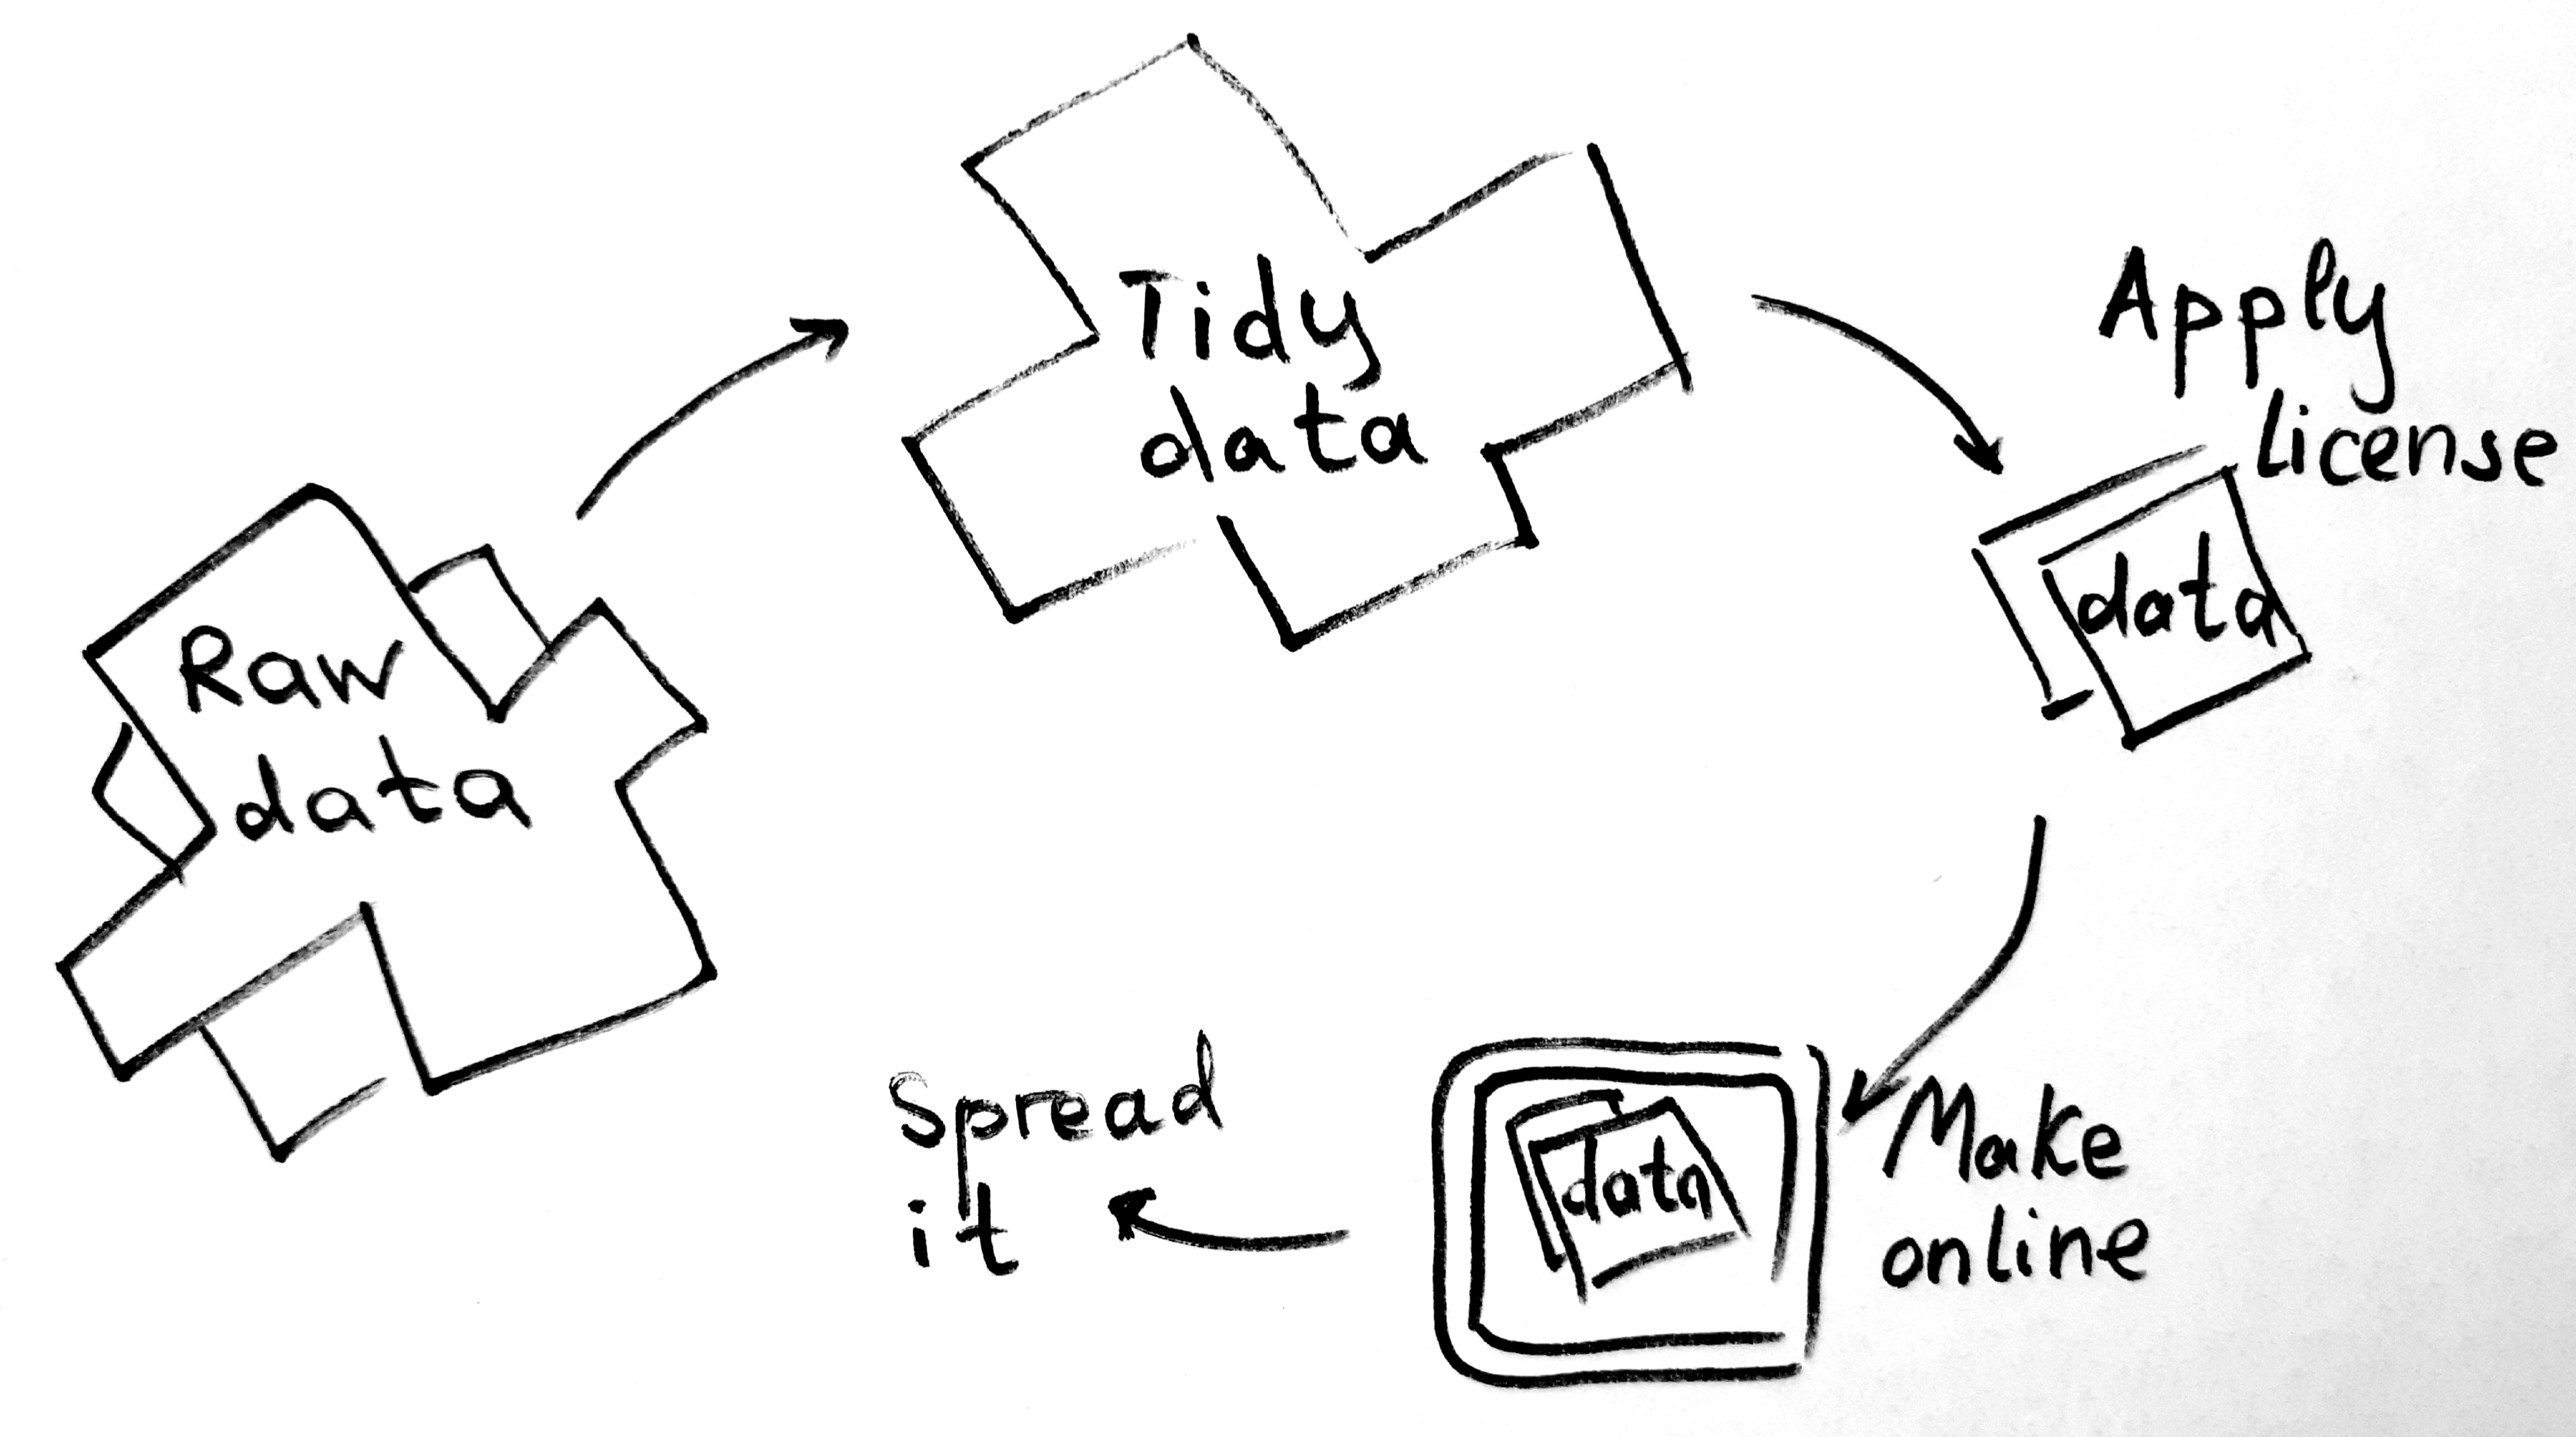 Raw
data
Tidy
data
Apply
license
data
data
Make
online
Spread
it